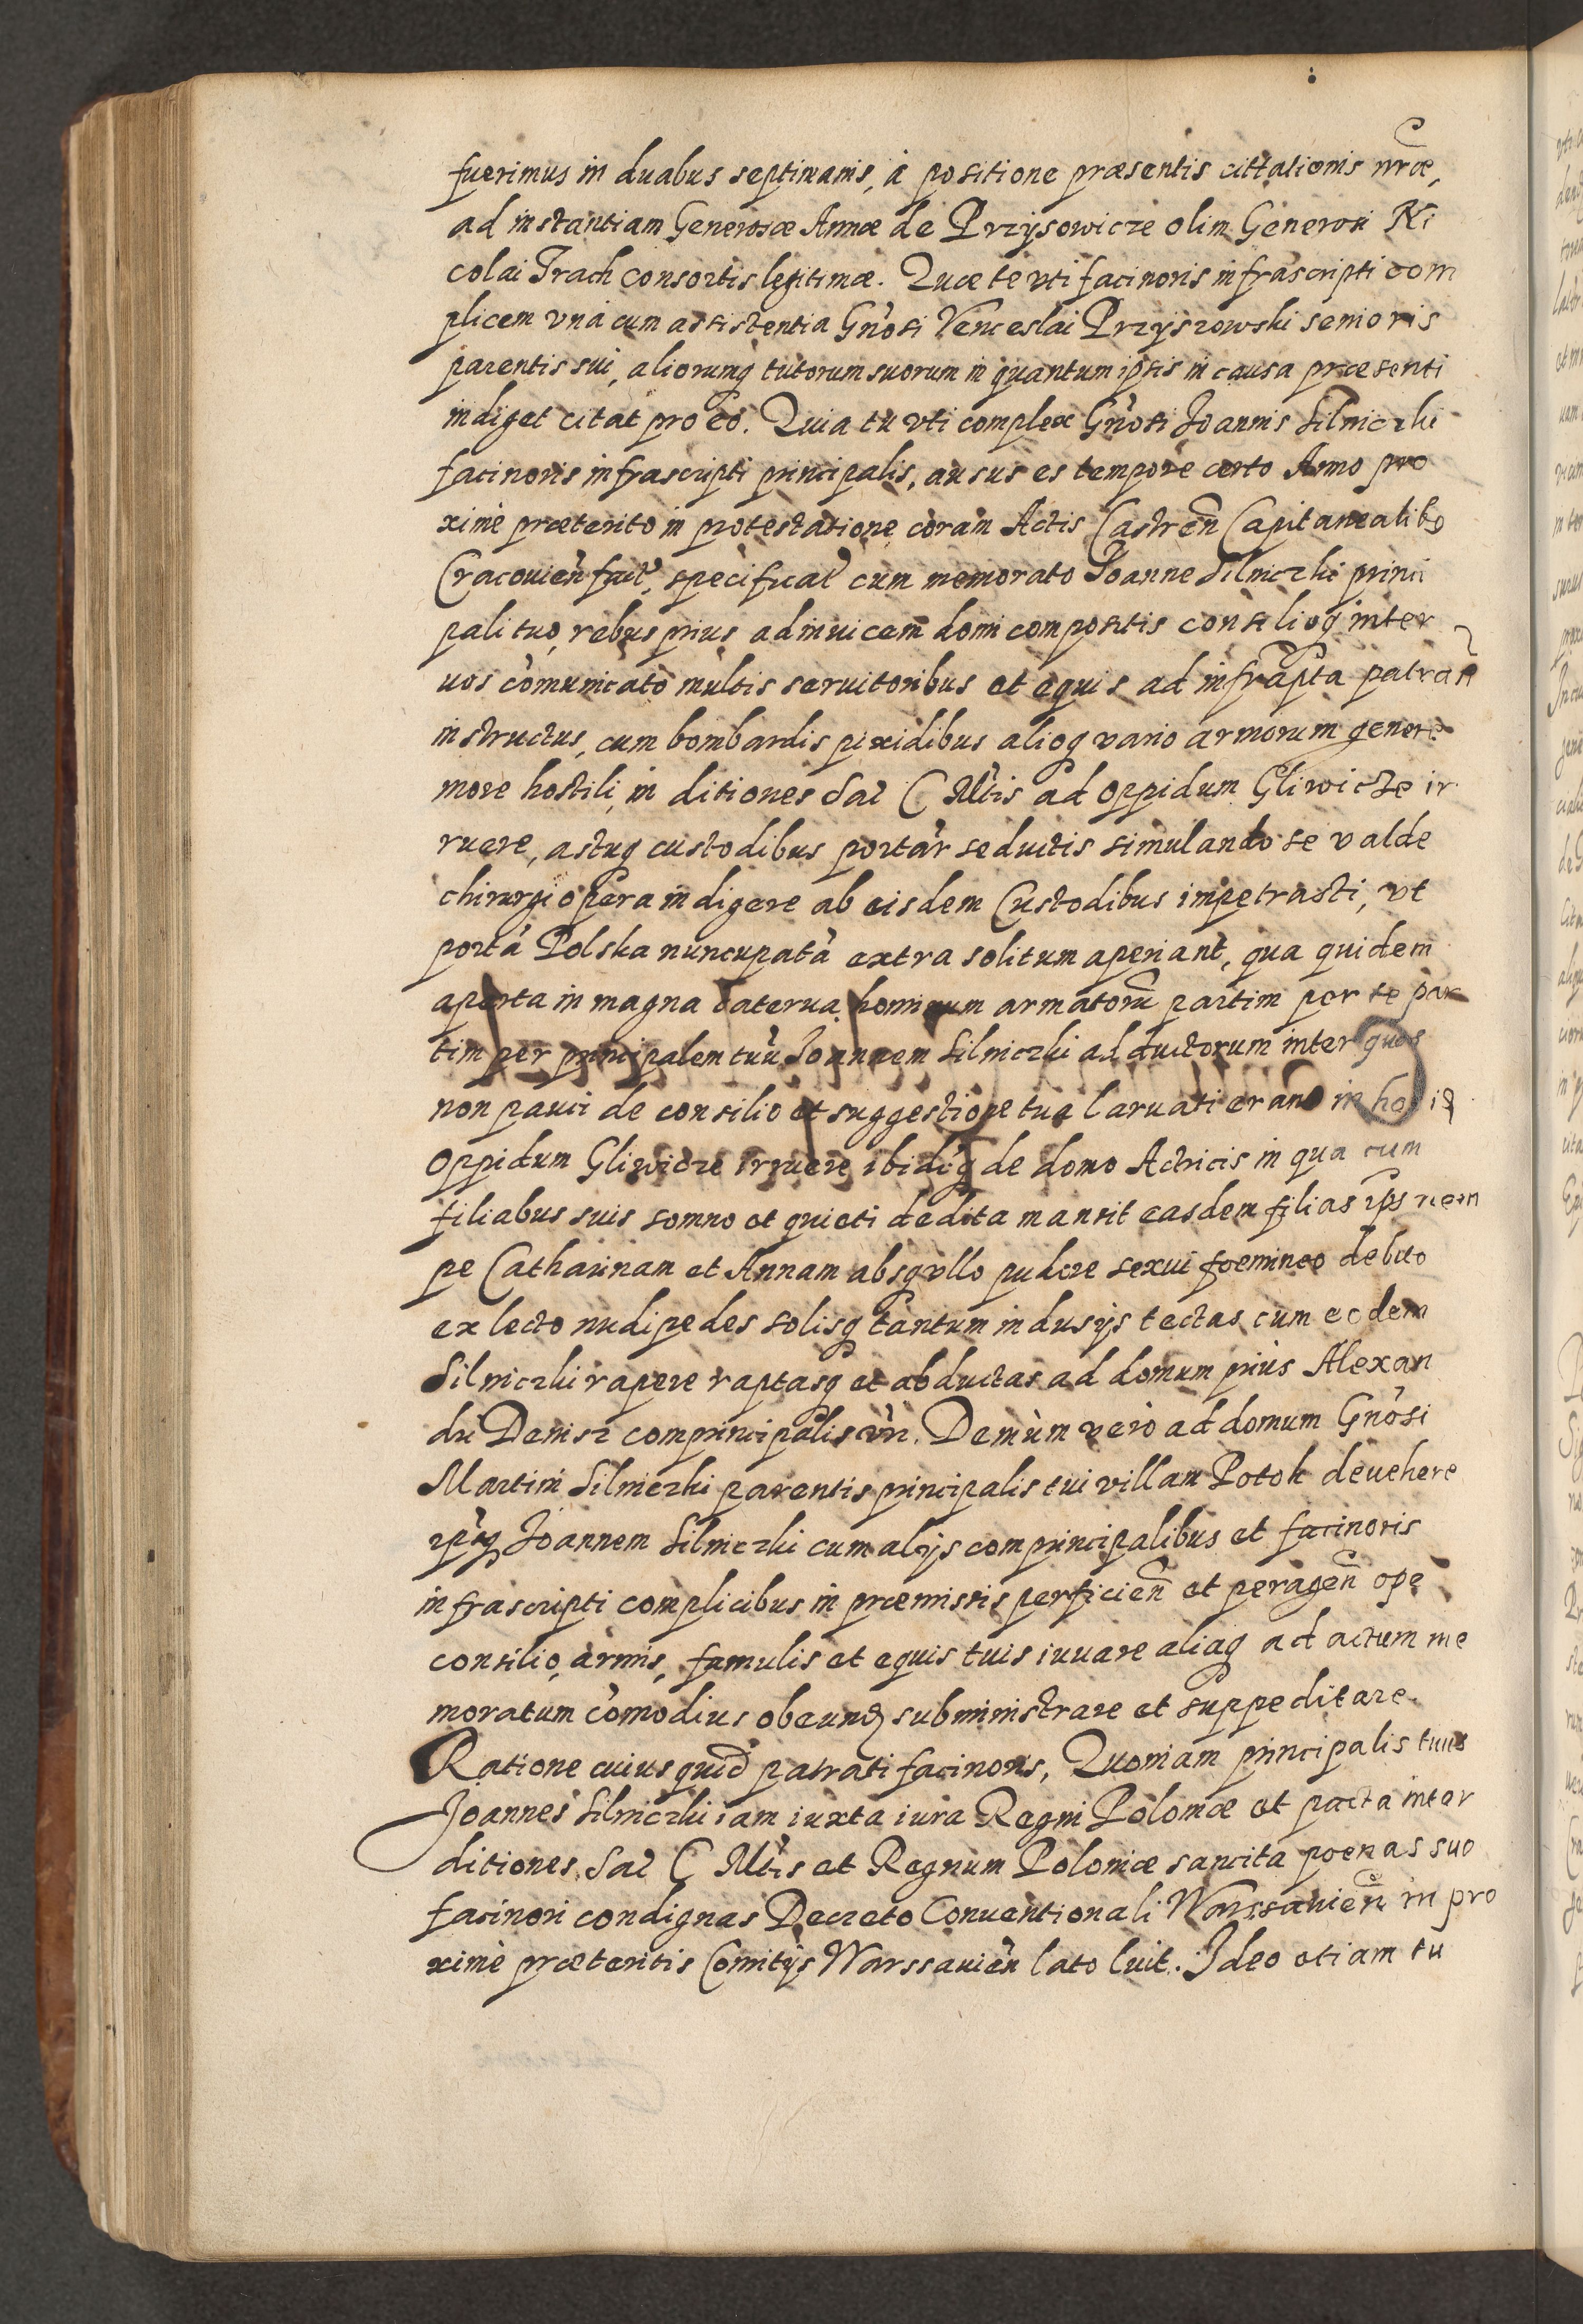 fuerimus in duabus septimanis, à positione præsentis cittationis nræ,
ad instantiam Generosæ Annæ de Przysowicze olim Generosi Ni
colai Trach consortis legitimæ. Quæ te vti facinoris infrascripti com
plicem vnà cum assistentia Gnosi Venceslai Przyszowski senioris
parentis sui, aliorumq tutorum suorum in quantum ipsis in causa præsenti
indiget citat pro eo. Quia tu vti complex Gnosi Joannis Silniczki
facinoris infrascripti principalis, ausus es tempore certo Anno pro
ximè præterito in protestatione coram Actis Castren Capitanealibq
Cracouien fact, specificat cum memorato Joanne Silniczki princi
pali tuo, rebus prius adinuicem domi compositis consilioq inter
uos comunicato multis seruitoribus et equis ad infrapta patran
instructus, cum bombardis pixidibus alioq vario armorum genere
more hostili, in ditiones Sac C Mtis ad oppidum Gliwicze ir
ruere, astuq custodibus portar seductis simulando se valde
chirurgi opera indigere ab eisdem Custodibus impetrasti, vt
portà Polska nuncupatà extra solitum aperiant, qua quidem
aperta in magna caterua hominum armatoru partim per te par
tim per principalem tuu Joannem Silniczki adductorum inter quos
non pauci de consilio et suggestione tua laruati erant in
oppidum Gliwicze irruere ibidq de domo Actricis in qua cum
filiabus suis somno et quieti dedita mansit easdem filias ips nem
pe Catharinam et Annam absq vllo pudore sexui foemineo debito
ex lecto nudipedes solisq tantum indusijs tectas cum eodem
Silniczki rapere raptasq et abductas ad domum prius Alexan
dri Denisz comprincipalis vri. Demùm verò ad domum Gnosi
Martini Silniczki parentis principalis tui villam Potok deuehere
ipuq Joannem Silniczki cum alijs comprincipalibus et facinoris
infrascripti complicibus in præmissis perficien et peragen ope
consilio, armis, famulis et equis tuis iuuare aliaq ad actum me
moratum comodius obeund subministrare et suppeditare.
Ratione cuius quid patrati facinoris, Quoniam principalis tuus
Joannes Silniczki iam iuxta iura Regni Poloniæ et pacta inter
ditiones Sac C Mtis et Regnum Poloniæ sancita poenas suo
facinori condignas Decreto Conuentionali Warssauien in pro
ximè præteritis Comitijs Warssauien lato luit. Ideo etiam tu